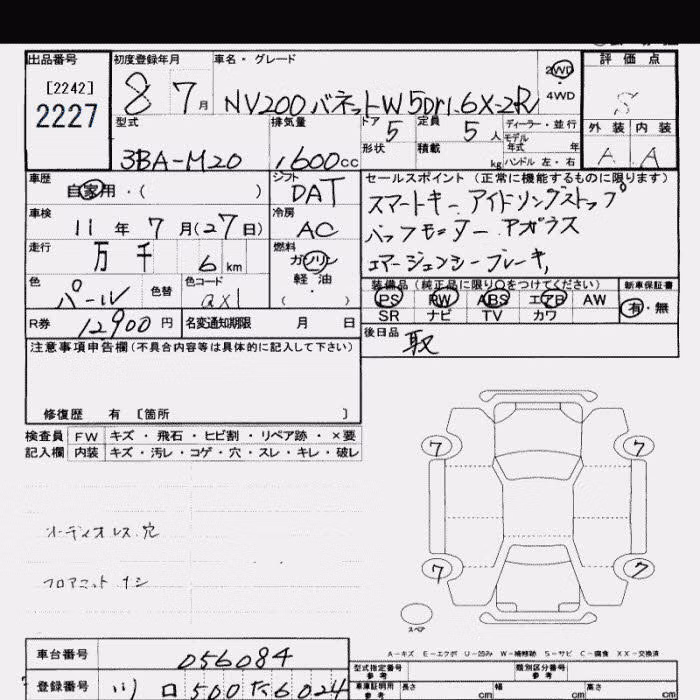 出品番号
[2242]
2227
初度登録年月
8 7 月
車名・グレード
NV200 バネットW 5Dr 1.6X-2R
2WD
4WD
評価点
S
外装 内装
A A
型式
3BA-M20
排気量
1,600 cc
ドア 5
形状
定員 5 人
積載 kg
ディーラー・並行
モデル年式 年
ハンドル 左・右
車歴
自家用・( )
シフト
DAT
車検
11 年 7 月 (27日)
冷房
AC
走行
万 千 6 km
燃料
ガソリン
軽油
( )
色
パール
色替
色コード
QX1
R券 12900 円
名変通知期限 月 日
セールスポイント (正常に機能するものに限ります)
スマートキー アイドリングストップ
バックモニター アボラス
エマージェンシーブレーキ,
装備品 (純正品に限り○をつけてください)
PS PW ABS エアB AW
SR ナビ TV カワ
新車保証書
有・無
後日品
取
注意事項申告欄(不具合内容等は具体的に記入して下さい)
修復歴 有 〔箇所 〕
検査員 FW キズ・飛石・ヒビ割・リペア跡・×要
記入欄 内装 キズ・汚レ・コゲ・穴・スレ・キレ・破レ
オーディオレス穴
フロアマットナシ
7 7
7 7
スペア
A-キズ E-エクボ U-凹み W-補修跡 S-サビ C-腐食 XX-交換済
車台番号
056084
登録番号
川口 500 た 6024
型式指定番号 参考
類別区分番号 参考
車庫証明用 参考
長さ cm
幅 cm
高さ cm